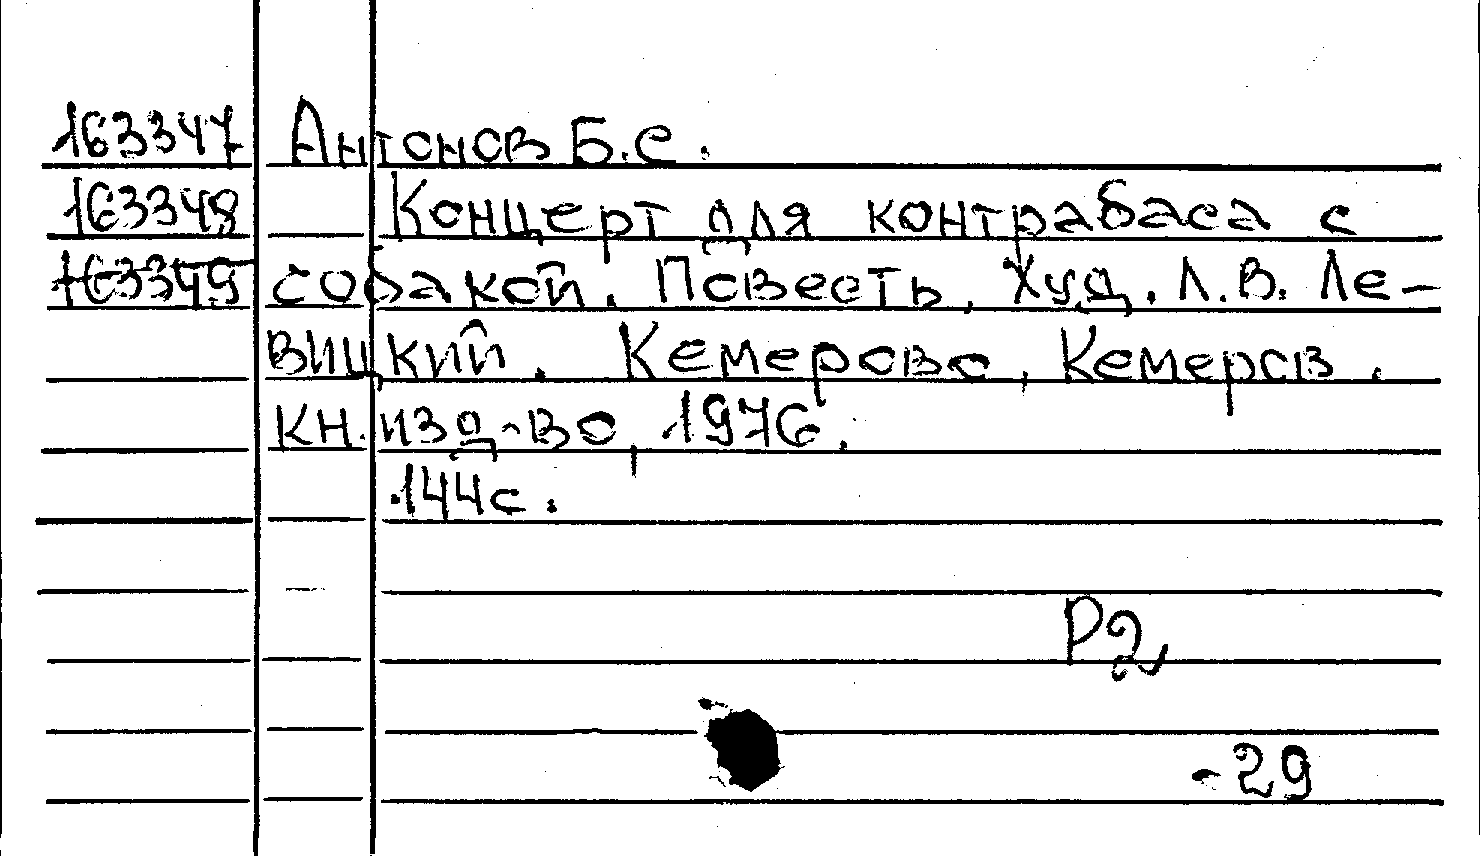 163347 Антонов Б.С.
163348 Концерт для контрабаса с
163349 собакой. Повесть. Худ. Л.В. Ле-
вицкий. Кемерово, Кемеров.
кн. изд-во, 1976.
144с.
Р2
-29